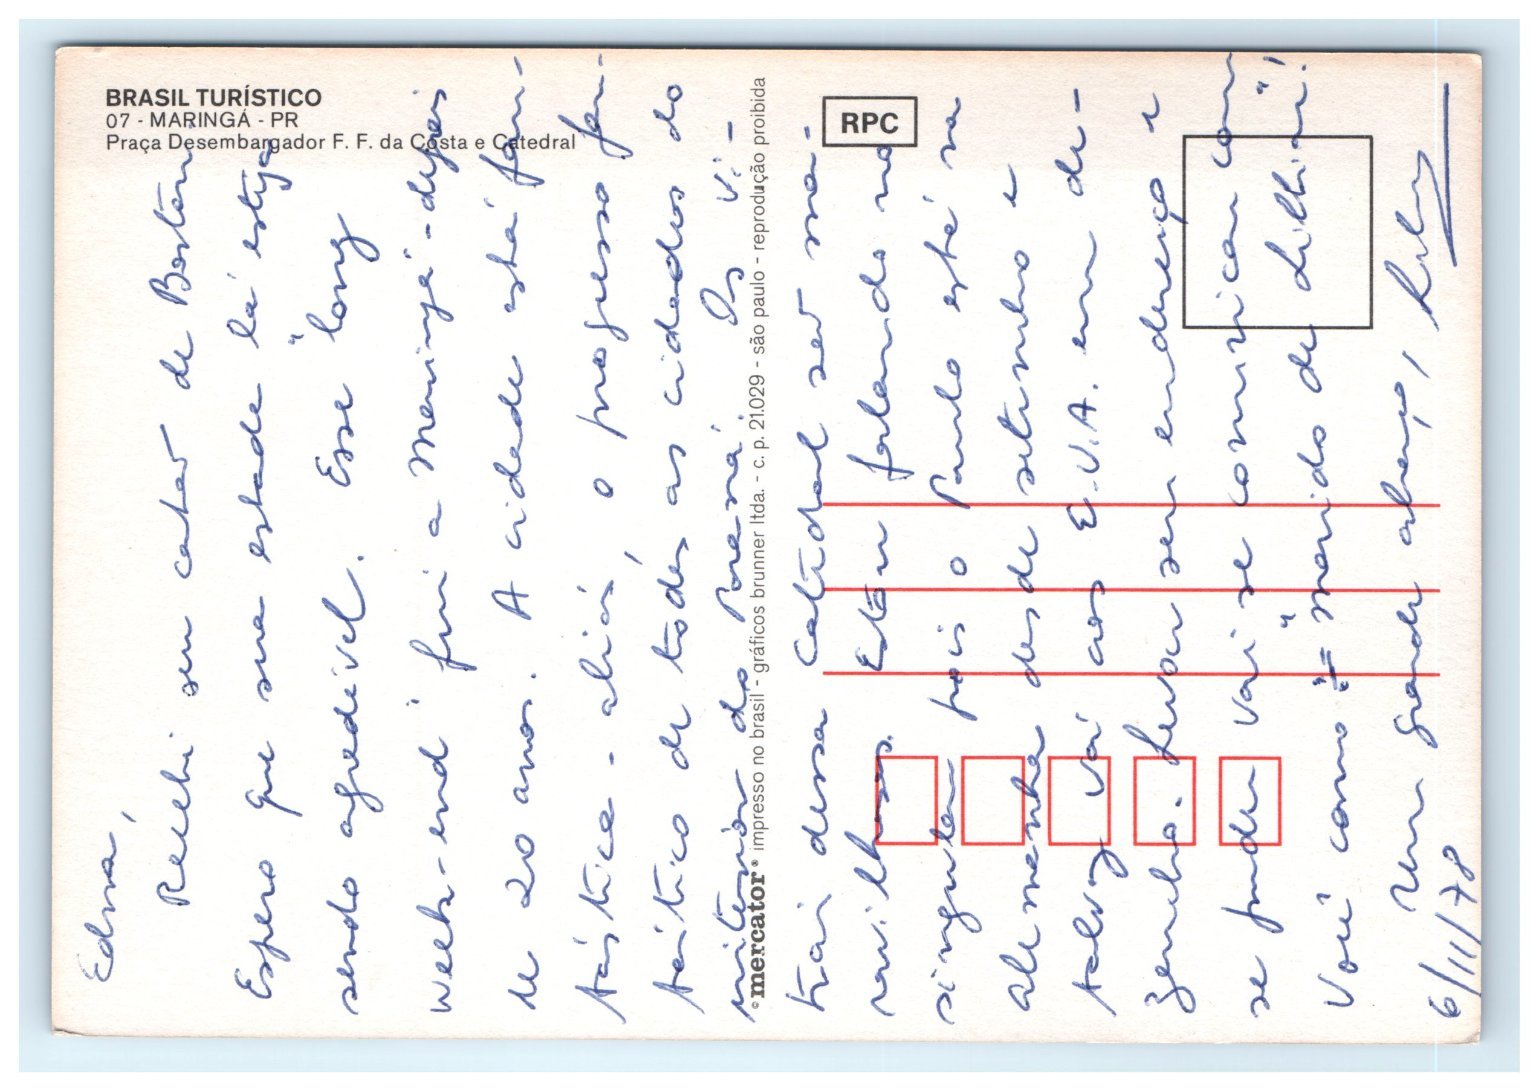 BRASIL TURÍSTICO
07 - MARINGÁ - PR
Praça Desembargador F. F. da Costa e Catedral
RPC
mercator impresso no brasil - gráficos brunner ltda. - c. p. 21.029 - são paulo - reprodução proibida
Edna,
Recebi seu cartão de Boston
Espero que sua estada lá esteja
sendo agradável. Esse "long
week-end" fui a Maringá - depois
de 20 anos. A cidade está fan-
tástica - aliás, o progresso fan-
tástico de todas as cidades do
interior do Paraná. Os vi-
trais dessa Catedral são ma-
ravilhosos. Estou falando no
singular pois o Paulo está na
Alemanha desde setembro e
talvez vá aos E.U.A. em de-
zembro. Levou seu endereço e
se puder vai se comunicar com
você como "marido de Lilhian"!
Um grande abraço,
6/11/78